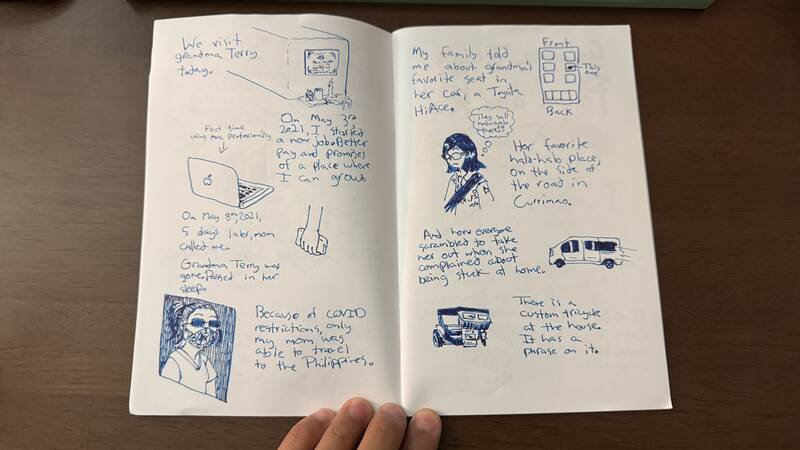 We visit
grandma Terry
today.
On May 3rd,
2021, I started
a new job. Better
pay and promises
of a place where
I can grow.
First time
using Mac professionally
On May 8th, 2021,
5 days later, mom
called me.
Grandma Terry was
gone. Passed in her
sleep.
Because of COVID
restrictions, only
my mom was
able to travel
to the Philippines.
My family told
me about grandma's
favorite seat in
her car, a Toyota
HiAce.
Front
This
one
Back
They sell
halo-halo
there!!
Her favorite
halo-halo place,
on the side of
the road in
Currimao.
And how everyone
scrambled to take
her out when she
complained about
being stuck at home.
There is a
custom tricycle
at the house.
It has a
phrase on it.